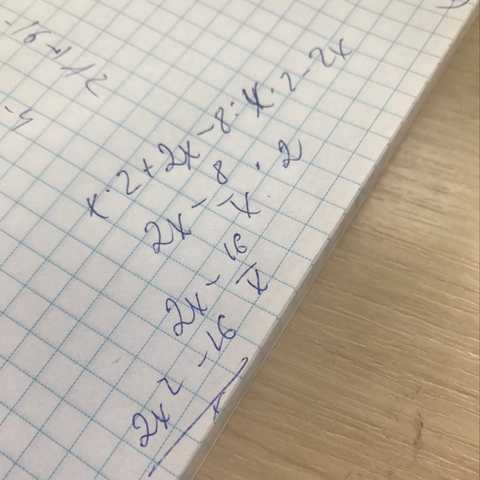 x · 2 + 2x - 8 : x · 2 - 2x
2x - 8/x · 2
2x - 16/x
2x² - 16
x